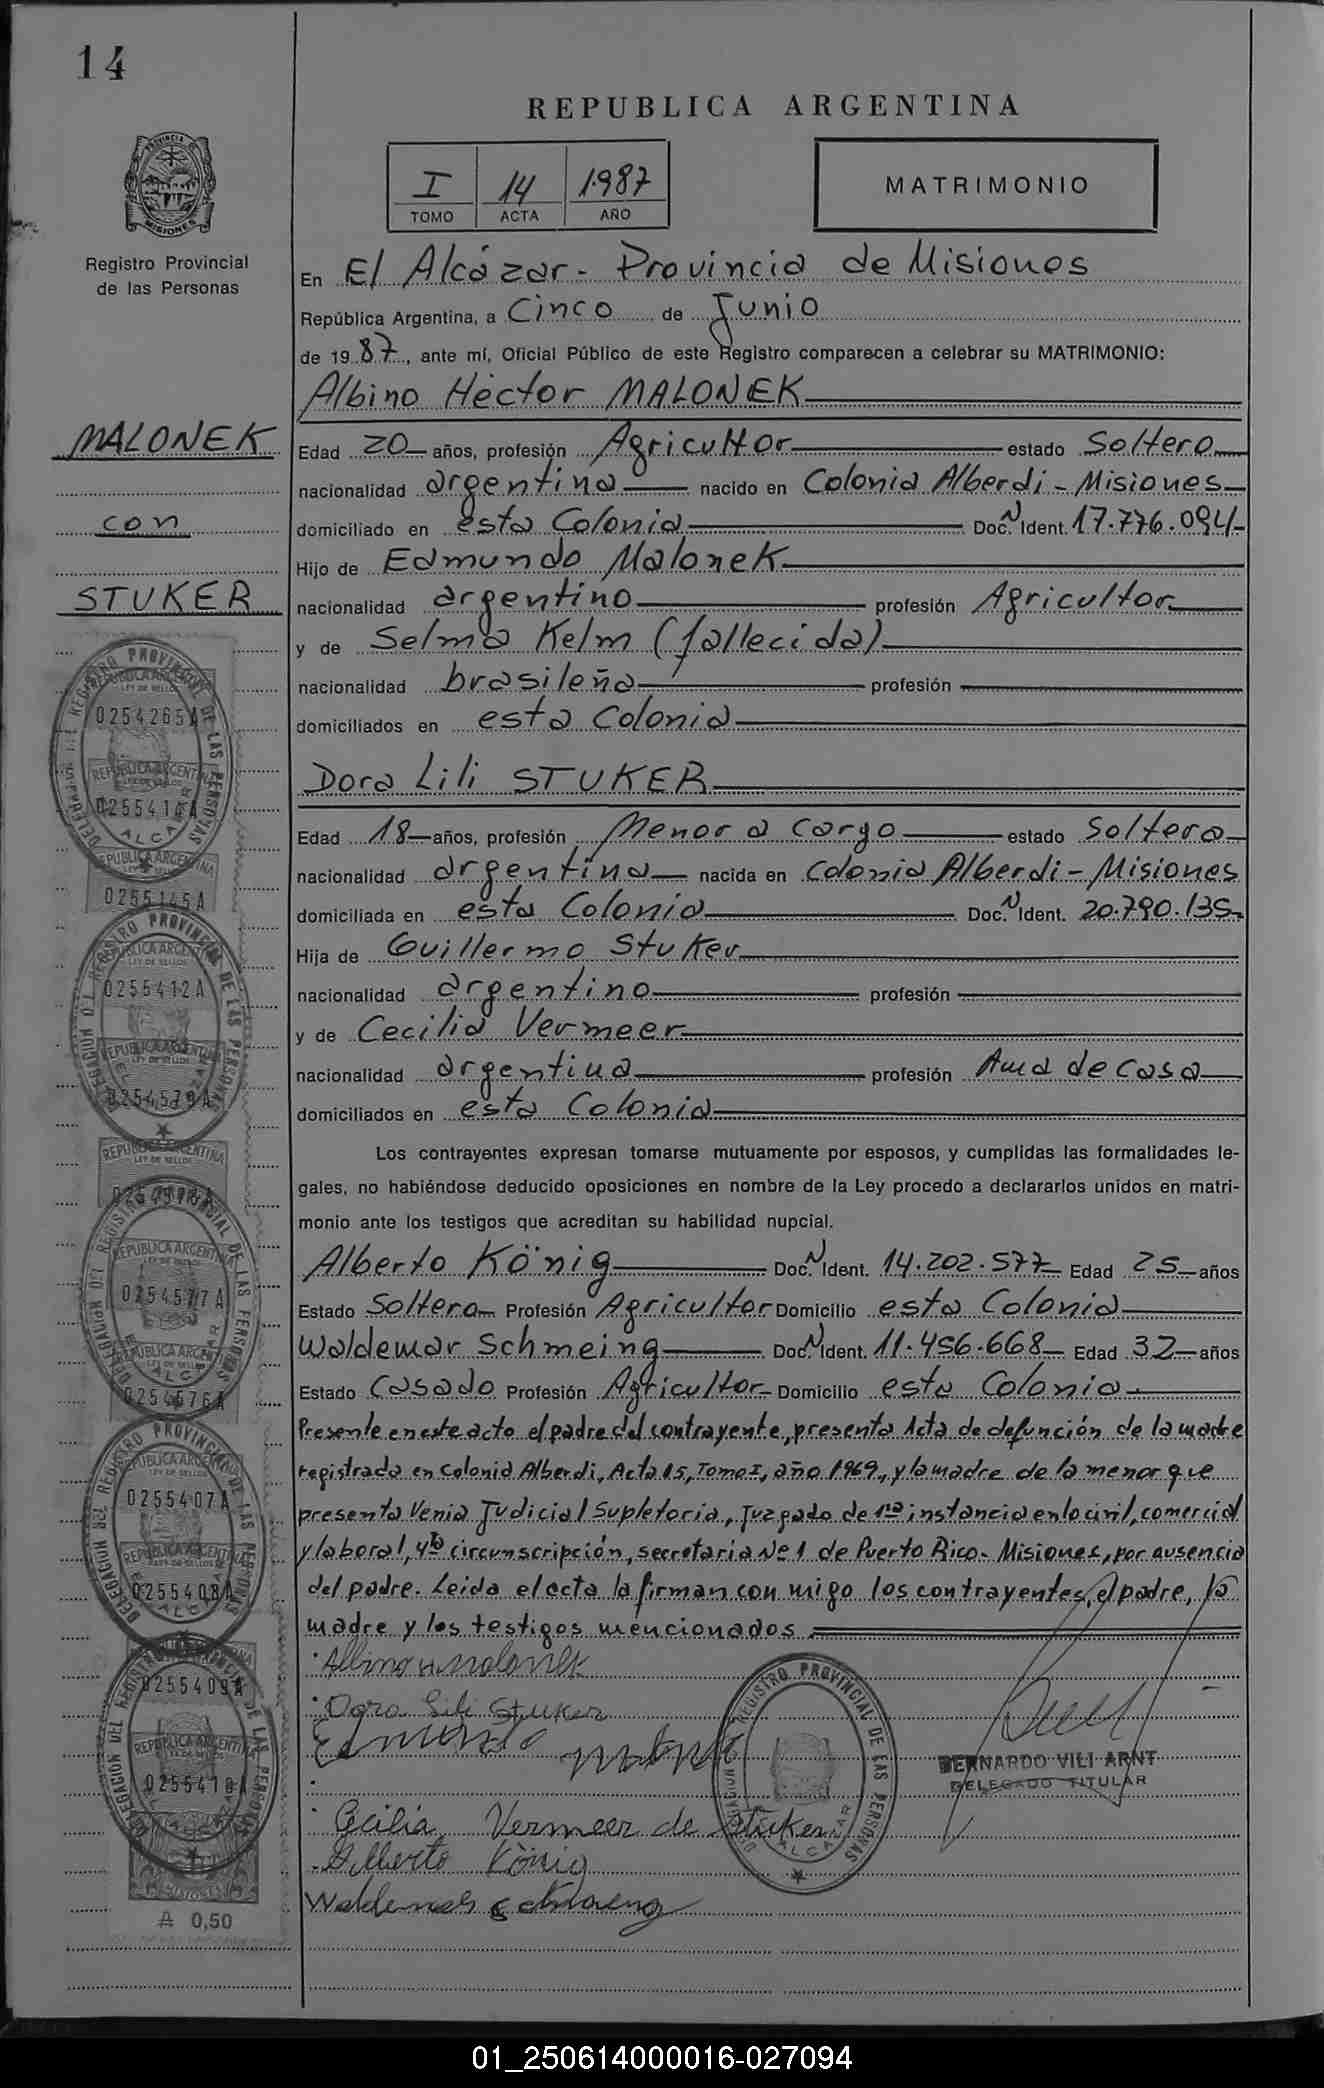 14
REPUBLICA ARGENTINA
I 14 1987
TOMO ACTA AÑO
MATRIMONIO
PROVINCIA D
MISIONES
Registro Provincial
de las Personas
En El Alcázar - Provincia de Misiones
República Argentina, a Cinco de Junio
de 1987, ante mí, Oficial Público de este Registro comparecen a celebrar su MATRIMONIO:
Albino Héctor MALONEK
MALONEK
con
STUKER
Edad 20 años, profesión Agricultor estado Soltero
nacionalidad argentina nacido en Colonia Alberdi - Misiones
domiciliado en esta Colonia Doc. N Ident. 17.776.094
Hijo de Edmundo Malonek
nacionalidad argentino profesión Agricultor
y de Selma Kelm (fallecida)
nacionalidad brasileña profesión
domiciliados en esta Colonia
Dora Lili STUKER
Edad 18 años, profesión Menor a cargo estado Soltera
nacionalidad argentina nacida en Colonia Alberdi - Misiones
domiciliada en esta Colonia Doc. N Ident. 20.790.135
Hija de Guillermo Stuker
nacionalidad argentino profesión
y de Cecilia Vermeer
nacionalidad argentina profesión Ama de casa
domiciliados en esta Colonia
Los contrayentes expresan tomarse mutuamente por esposos, y cumplidas las formalidades le-
gales, no habiéndose deducido oposiciones en nombre de la Ley procedo a declararlos unidos en matri-
monio ante los testigos que acreditan su habilidad nupcial.
Alberto König Doc. N Ident. 14.202.577 Edad 25 años
Estado Soltero Profesión Agricultor Domicilio esta Colonia
Waldemar Schmeing Doc. N Ident. 11.456.668 Edad 32 años
Estado Casado Profesión Agricultor Domicilio esta Colonia
Presente en este acto el padre del contrayente, presenta Acta de defunción de la madre
registrada en Colonia Alberdi, Acta 15, Tomo I, año 1969, y la madre de la menor que
presenta Venia Judicial Supletoria, Juzgado de 1ra instancia en lo civil, comercial
y laboral, 4ta circunscripción, secretaria Nº 1 de Puerto Rico - Misiones, por ausencia
del padre. Leida el acta la firman con migo los contrayentes, el padre, la
madre y los testigos mencionados
Albino H. Malonek
Dora Lili Stuker
Edmundo
BERNARDO VILI ARNT
DELEGADO TITULAR
Cecilia Vermeer de Stuker
Alberto König
DELEGACION DEL REGISTRO PROVINCIAL DE LAS PERSONAS
EL ALCAZAR
REPUBLICA ARGENTINA
LEY DE SELLOS
0254265A
0255414A
0255145A
0255412A
0254579A
0254578A
0254577A
0254576A
0255407A
0255408A
0255409A
0255410A
MISIONES
A 0,50
01_250614000016-027094